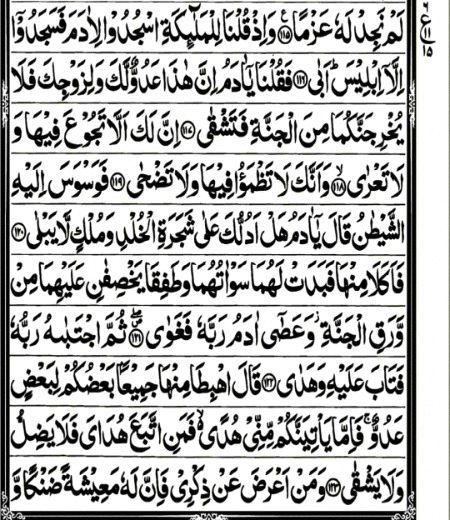 لَمْ نَجِدْ لَهٗ عَزْمًا ﴿۱۱۵﴾ وَاِذْ قُلْنَا لِلْمَلٰٓئِكَةِ اسْجُدُوْا لِاٰدَمَ فَسَجَدُوْۤا
اِلَّاۤ اِبْلِیْسَ ؕ اَبٰی ﴿۱۱۶﴾ فَقُلْنَا یٰۤاٰدَمُ اِنَّ هٰذَا عَدُوٌّ لَّكَ وَلِزَوْجِكَ فَلَا
یُخْرِجَنَّكُمَا مِنَ الْجَنَّةِ فَتَشْقٰی ﴿۱۱۷﴾ اِنَّ لَكَ اَلَّا تَجُوْعَ فِیْهَا وَ
لَا تَعْرٰی ﴿۱۱۸﴾ وَاَنَّكَ لَا تَظْمَؤُا فِیْهَا وَلَا تَضْحٰی ﴿۱۱۹﴾ فَوَسْوَسَ اِلَیْهِ
الشَّیْطٰنُ قَالَ یٰۤاٰدَمُ هَلْ اَدُلُّكَ عَلٰی شَجَرَةِ الْخُلْدِ وَمُلْكٍ لَّا یَبْلٰی ﴿۱۲۰﴾
فَاَكَلَا مِنْهَا فَبَدَتْ لَهُمَا سَوْاٰتُهُمَا وَطَفِقَا یَخْصِفٰنِ عَلَیْهِمَا مِنْ
وَّرَقِ الْجَنَّةِ ؗ وَعَصٰۤی اٰدَمُ رَبَّهٗ فَغَوٰی ﴿۱۲۱﴾ ثُمَّ اجْتَبٰىهُ رَبُّهٗ
فَتَابَ عَلَیْهِ وَهَدٰی ﴿۱۲۲﴾ قَالَ اهْبِطَا مِنْهَا جَمِیْعًۢا بَعْضُكُمْ لِبَعْضٍ
عَدُوٌّ ۚ فَاِمَّا یَاْتِیَنَّكُمْ مِّنِّیْ هُدًی ۙ فَمَنِ اتَّبَعَ هُدَایَ فَلَا یَضِلُّ
وَلَا یَشْقٰی ﴿۱۲۳﴾ وَمَنْ اَعْرَضَ عَنْ ذِكْرِیْ فَاِنَّ لَهٗ مَعِیْشَةً ضَنْكًا وَّ
٦
ع ١١
١٥